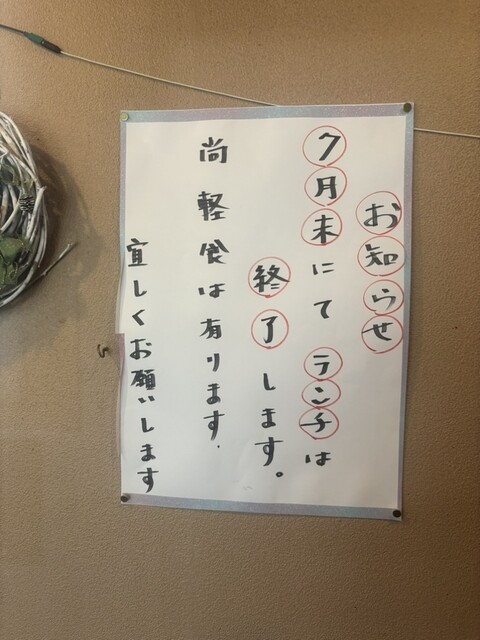 お知らせ
7月末にて ランチは
終了します。
尚 軽食は有ります.
宜しくお願いします